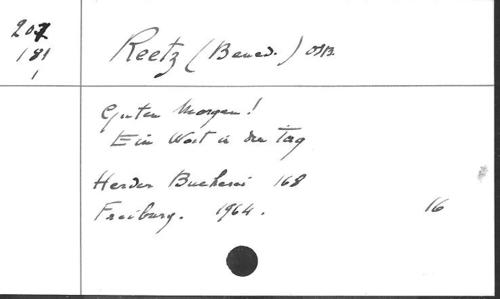 207
181
1
Reetz (Bened.) OSB.
Guten Morgen!
Ein Wort in den Tag
Herder Bucherei 168
Freiburg. 1964.
16